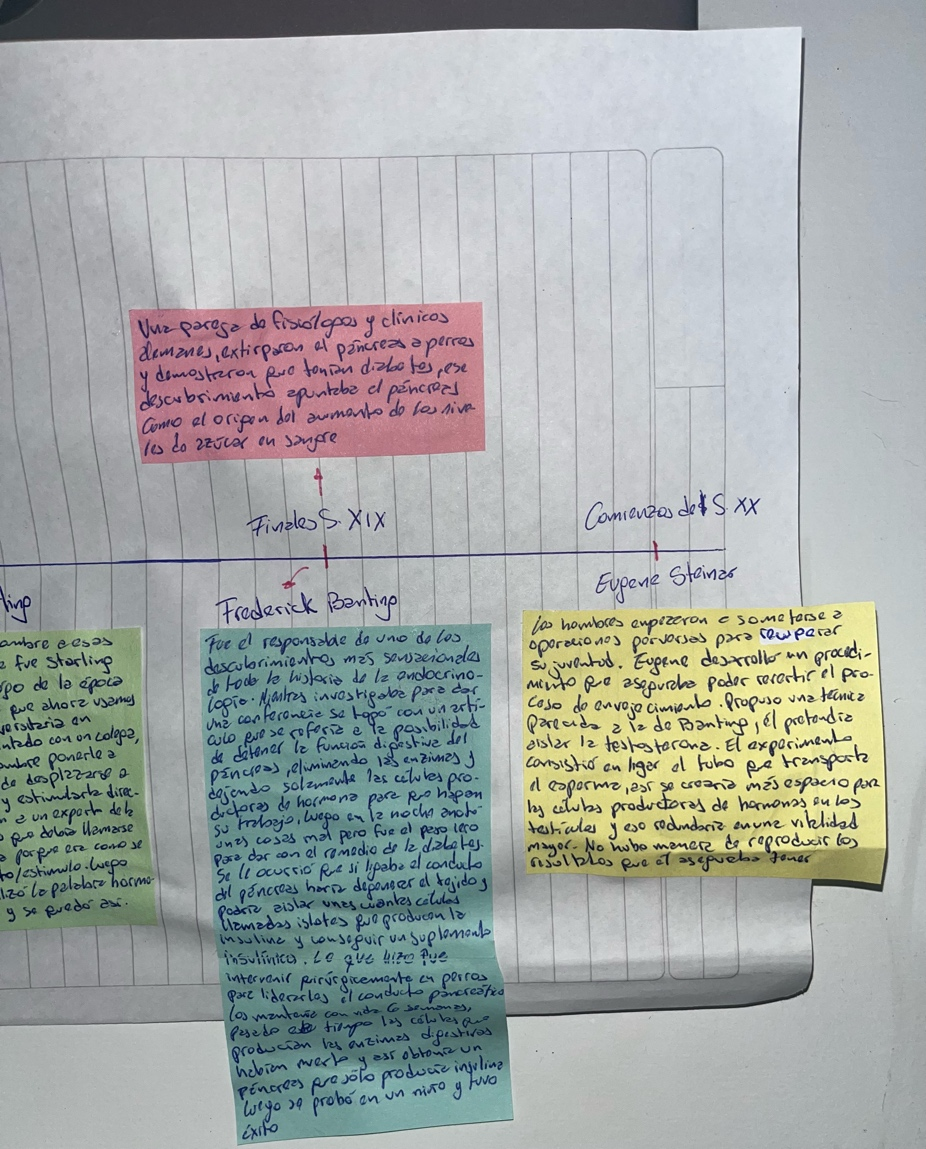 Una pareja de fisiólogos y clínicos
alemanes, extirparon el páncreas a perros
y demostraron que tenían diabetes, ese
descubrimiento apuntaba el páncreas
como el origen del aumento de los nive-
les de azúcar en sangre
Finales S. XIX
Comienzos del S. XX
ling
Frederick Banting
Eugene Steinar
ombre a esas
fue Starling
po de la época
que ahora usamos
versitaria en
ntado con un colega,
ombre ponerle a
de desplazarse a
y estimularla direc-
a un experto de la
que debía llamarse
porque era como se
to/estímulo. Luego
lizó la palabra hormo-
y se quedó así.
Fue el responsable de uno de los
descubrimientos más sensacionales
de toda la historia de la endocrino-
logía. Mientras investigaba para dar
una conferencia se topó con un artí-
culo que se refería a la posibilidad
de detener la función digestiva del
páncreas, eliminando las enzimas y
dejando solamente las células pro-
ductoras de hormona para que hagan
su trabajo, luego en la noche anotó
unas cosas mal pero fue el paso
para dar con el remedio de la diabetes.
Se le ocurrió que si ligaba el conducto
del páncreas haría degenerar el tejido y
podría aislar unas cuantas células
llamadas islotes que producen la
insulina y conseguir un suplemento
insulínico. Lo que hizo fue
intervenir quirúrgicamente en perros
para el conducto pancreático
los mantenía con vida 6 semanas,
pasado este tiempo las células que
producían las enzimas digestivas
habían muerto y así obtenía un
páncreas que sólo producía insulina
luego se probó en un niño y tuvo
éxito
Los hombres empezaron a someterse a
operaciones perversas para recuperar
su juventud. Eugene desarrolló un procedi-
miento que aseguraba poder revertir el pro-
ceso de envejecimiento. Propuso una técnica
parecida a la de Banting, él pretendía
aislar la testosterona. El experimento
consistió en ligar el tubo que transporta
el esperma, así se crearía más espacio para
las células productoras de hormonas en los
testículos y eso redundaría en una vitalidad
mayor. No hubo manera de reproducir los
resultados que él aseguraba tener